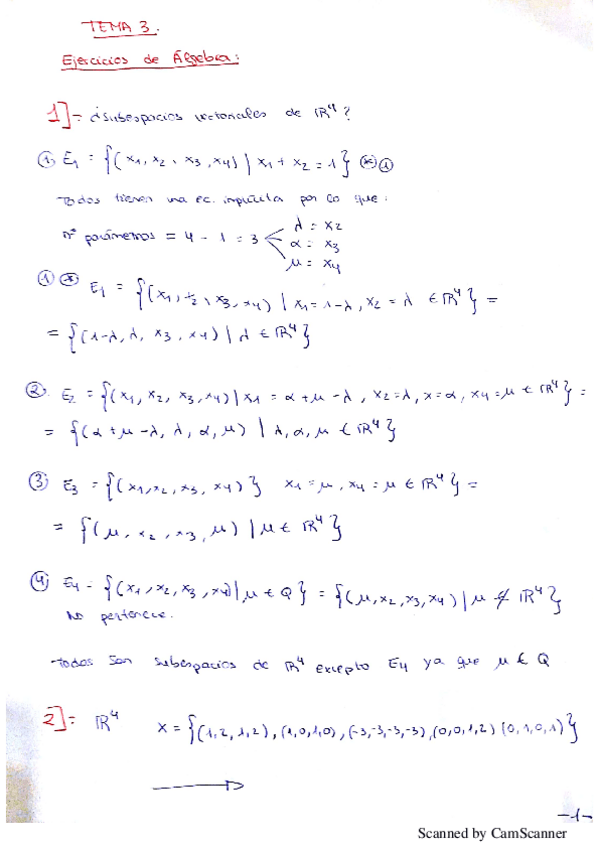 TEMA 3.
Ejercicios de Álgebra:
1]= ¿Subespacios vectoriales de ℝ⁴?
① E₁ = {(x₁, x₂, x₃, x₄) | x₁ + x₂ = 1} ⊛①
Todos tienen una ec. implícita por lo que:
nº parámetros = 4 - 1 = 3
λ = x₂
α = x₃
μ = x₄
① ⊛ E₁ = {(x₁, x₂, x₃, x₄) | x₁ = 1-λ, x₂ = λ ∈ ℝ⁴} =
= {(1-λ, λ, x₃, x₄) | λ ∈ ℝ⁴}
② E₂ = {(x₁, x₂, x₃, x₄) | x₁ = α+μ-λ, x₂=λ, x=α, x₄=μ ∈ ℝ⁴} =
= {(α+μ-λ, λ, α, μ) | λ, α, μ ∈ ℝ⁴}
③ E₃ = {(x₁, x₂, x₃, x₄)} x₁ = μ, x₄ = μ ∈ ℝ⁴} =
= {(μ, x₂, x₃, μ) | μ ∈ ℝ⁴}
④ E₄ = {(x₁, x₂, x₃, x₄) | μ ∈ Q} = {(μ, x₂, x₃, x₄) | μ ∉ ℝ⁴}
No pertenece.
Todos son subespacios de ℝ⁴ excepto E₄ ya que μ ∈ Q
2]= ℝ⁴ X = {(1,2,1,2), (1,0,1,0), (-3,-3,-3,-3), (0,0,1,2) (0,1,0,1)}
-1-
Scanned by CamScanner